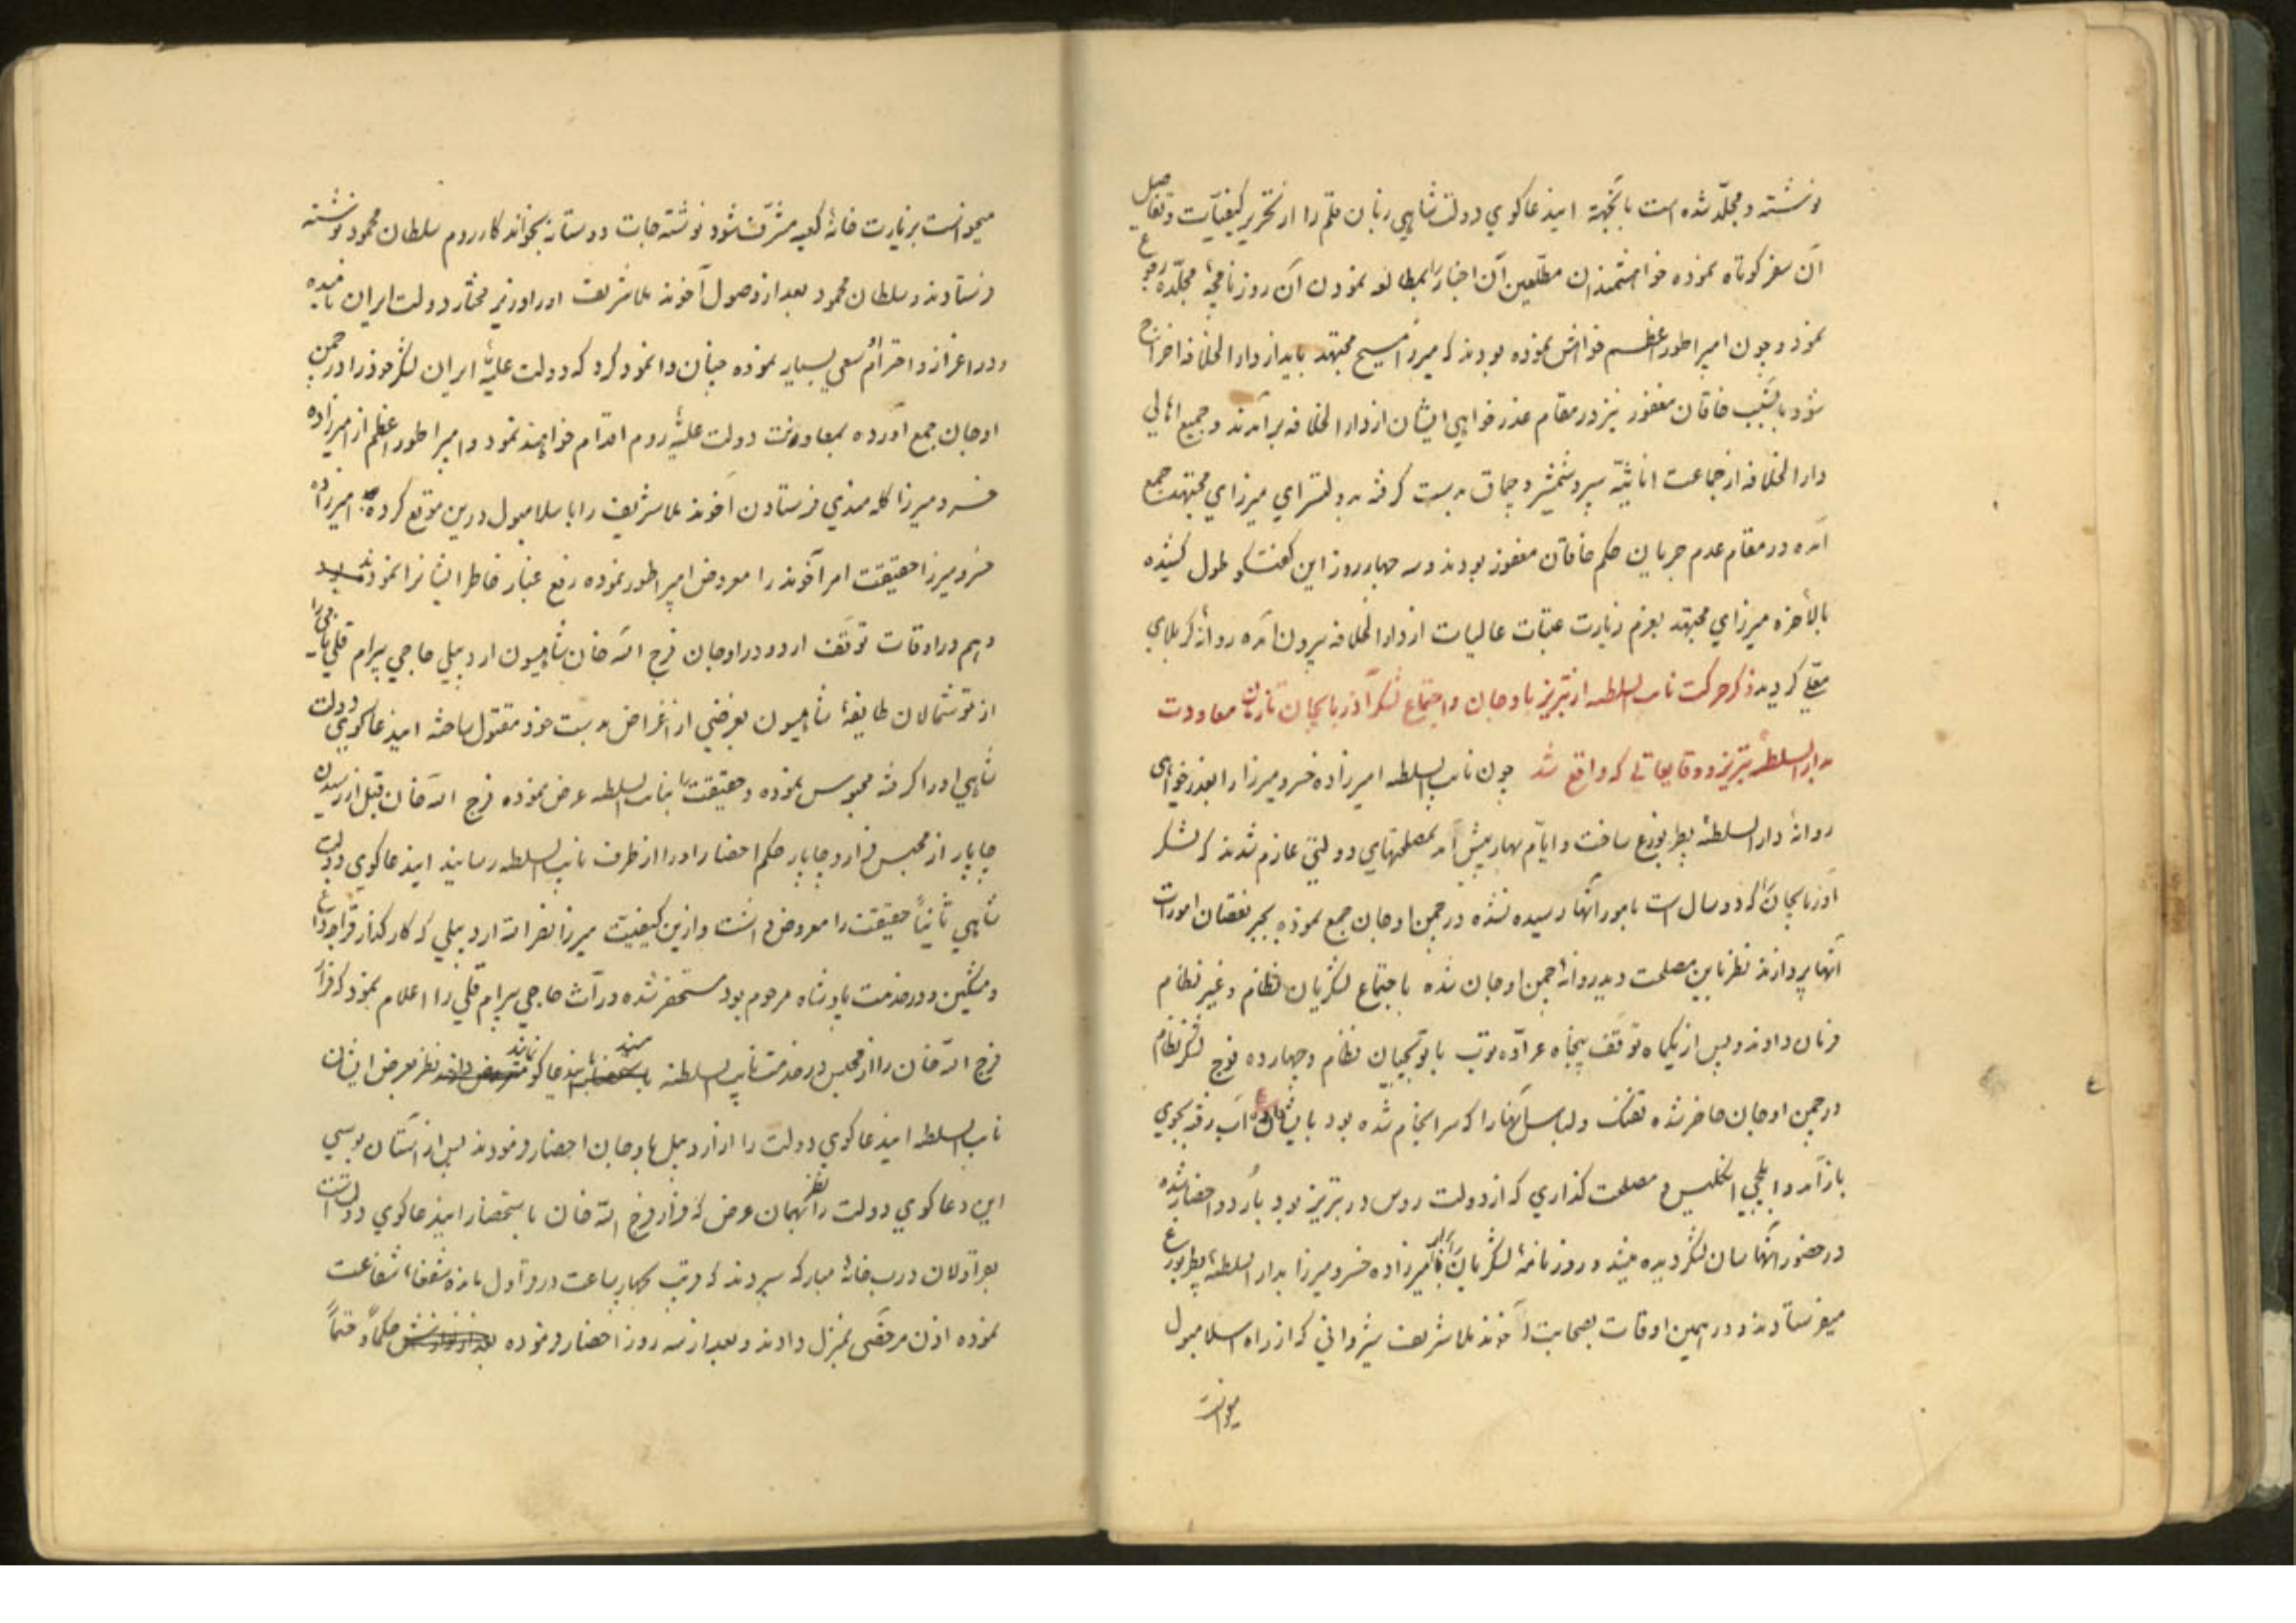 نوشته و مجلّد شده است باینجهة اینذعاکوي دولت شاهي زبان قلم را از تحریر کیفیّات و تفاصیل
آن سفر کوتاه نموده خواهشمندان مطّلعین آن اخبار را بمطالعه نمودن آن روزنامچهٔ مجلّده رجوع
نمود و چون امپراطور اعظم خواهش نموده بودند که میرزا مسیح مجتهد باید از دار الخلافه اخراج
شود باینسبب خاقان مغفور نیز در مقام عذر خواهي ایشان از دار الخلافه برآمدند و جمیع اهالي
دار الخلافه از جماعت اناثیّه سپر و شمشیر و چماق بدست کرفته بدولتسراي میرزاي مجتهد جمع
آمده در مقام عدم جریان حکم خاقان مغفور بودند و سه چهار روز این کفتکو طول کشیده
بالأخره میرزاي مجتهد بعزم زیارت عتبات عالیات از دار الخلافه بیرون آمده روانهٔ کربلاي
معلّي کردید ذکر حرکت نایب السلطنه از تبریز باوجان و اجتماع لشکر آذربایجان تا زمان معاودت
بدار السلطنهٔ تبریز و وقایعاتي که واقع شد چون نایب السلطنه امیرزاده خسرو میرزا را بعذر خواهی
روانهٔ دار السلطنهٔ پطربورغ ساخت و ایّام بهار پیش آمد بمصلحتهاي دولتي عازم شدند که لشکر
آذربایجان را که دو سال است بامور آنها رسیده نشده در چمن اوجان جمع نموده بجبر نقصان امورات
آنها پردازند نظر باین مصلحت دید روانهٔ چمن اوجان شده باجتماع لشکریان نظام و غیر نظام
فرمان دادند و پس از یکماه توقف پنجاه عرّاده توپ با توپچیان نظام و چهارده فوج لشکر نظام
در چمن اوجان حاضر شده تفنک و لباس آنها را که سرانجام شده بود بایشان داده آب رفته بجوي
باز آمد و ایلچي انکلیس و مصلحت کذاري که از دولت روس در تبریز بود باُردو احضار شده
در حضور آنها سان لشکر دیده میشد و روزنامهٔ لشکریان را برای امیرزاده خسرو میرزا بدار السلطنهٔ پطربورغ
میفرستادند و در همین اوقات بصحابت آخوند ملا شریف شیرواني که از راه اسلامبول
میخواست
میخواست بزیارت خانهٔ کعبه مشرّف شود نوشته جات دوستانه بخواندکار روم سلطان محمود نوشته
فرستادند و سلطان محمود بعد از وصول آخوند ملا شریف او را وزیر مختار دولت ایران نامیده
و در اعزاز و احترامش سعي بسیار نموده چنان وانمود کرد که دولت علیّهٔ ایران لشکر خود را در چمن
اوجان جمع آورده بمعاونت دولت علیّهٔ روم اقدام خواهند نمود و امپراطور اعظم از امیرزاده
خسرو میرزا کله مندي فرستادن آخوند ملا شریف را باسلامبول درین موقع کرده امیرزاده
خسرو میرزا حقیقت امر آخوند را معروض امپراطور نموده رفع غبار خاطر ایشانرا نمودند
و هم در اوقات توقف اردو در اوجان فرج الله خان شاهیسون اردبیلي حاجي بیرام قلي نامی را
از توشمالان طایفهٔ شاهیسون بغرضي از اغراض بدست خود مقتول ساخته اینذعاکوي دولت
شاهي او را کرفته محبوس نموده و حقیقت را بنایب السلطنه عرض نموده فرج الله خان قبل از رسیدن
چاپار از محبس فرار و چاپار حکم احضار او را از طرف نایب السلطنه رسانید اینذعاکوي دولت
شاهي ثانیاً حقیقت را معروض داشت و ازین کیفیّت میرزا نصر الله اردبیلي که کار کذار قراجه داغ
و مشکین و در خدمت پادشاه مرحوم بود مستحضر شده ورّاث حاجي بیرام قلي را اعلام نمود که فرار
فرج الله خان را از محبس در خدمت نایب السلطنه نظر بعرض ایشان
نایب السلطنه اینذعاکوي دولت را از اردبیل باوجان احضار فرمودند پس از آستان بوسي
این دعاکوي دولت را نظر بکمان عرض که فرار فرج الله خان باستحضار اینذعاکوي دولت است
بقراولان درب خانهٔ مبارکه سپردند که قریب چهار ساعت در قراول مانده شفعاء شفاعت
نموده اذن مرخصي بمنزل دادند و بعد از سه روز احضار فرموده حکماً و حتماً